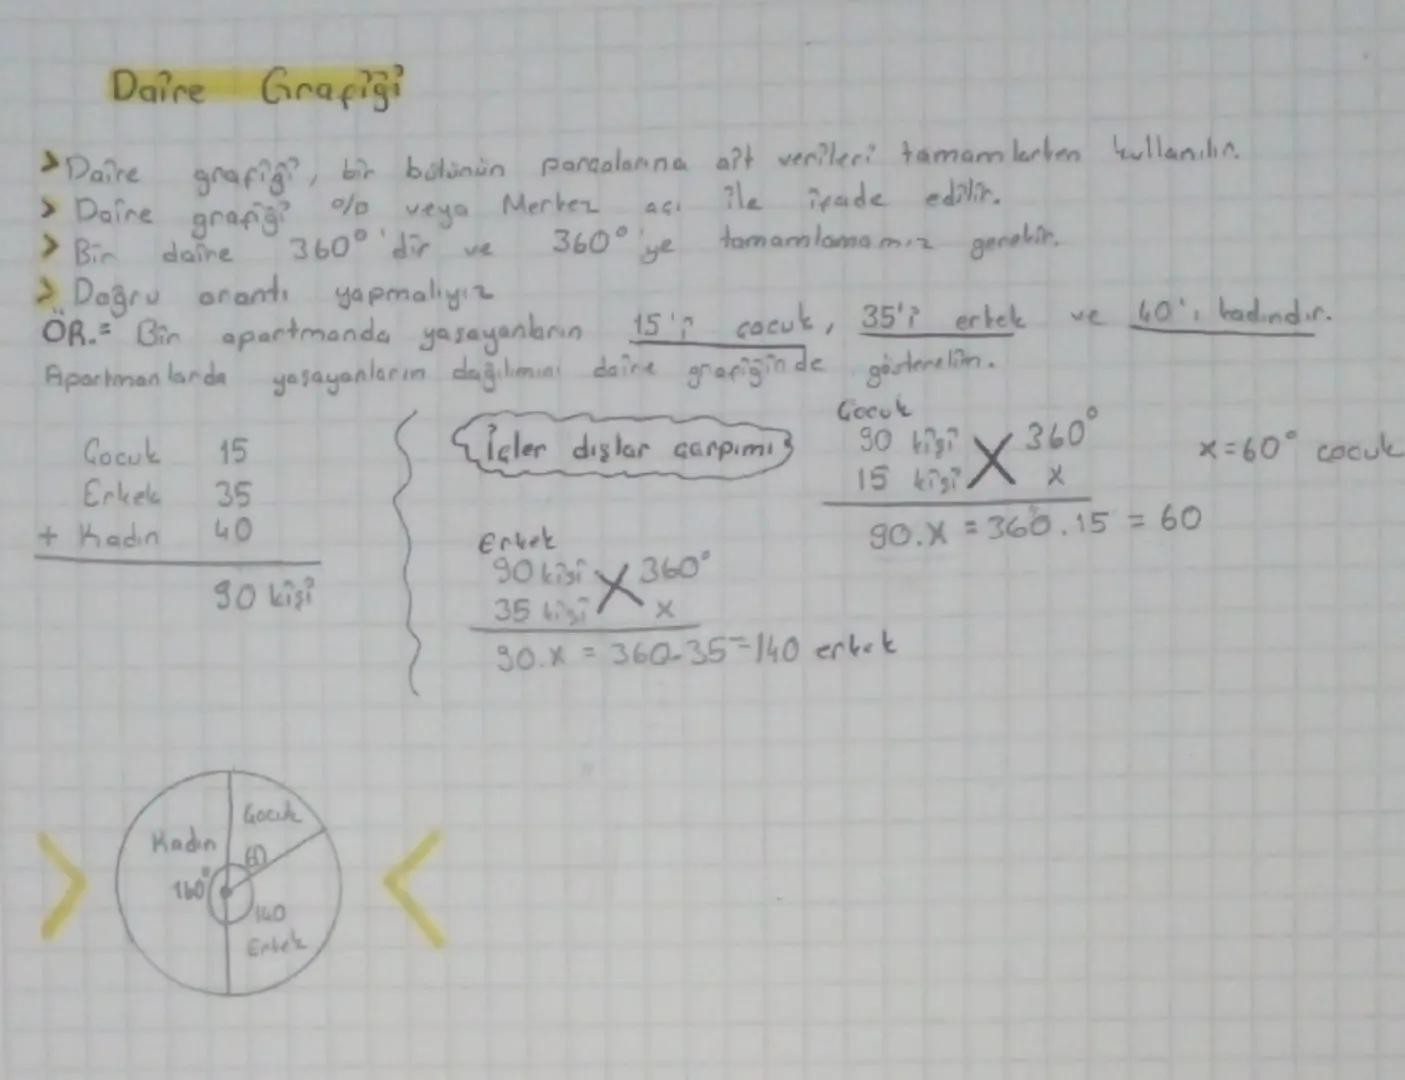 Daire Grafiği
> Daire grafiği, bir bütünün parçalarına ait verileri tamamlarken kullanılır.
> Daire grafiği % veya Merkez açı ile ifade edilir.
> Bir daire 360°'dir ve 360°'ye tamamlamamız gerekir.
> Doğru orantı yapmalıyız
ÖR.= Bir apartmanda yaşayanların 15'i çocuk, 35'i erkek ve 40'ı kadındır.
Apartmanlarda yaşayanların dağılımını daire grafiğinde gösterelim.
Çocuk 15
Erkek 35
+ Kadın 40
90 kişi
İçler dışlar çarpımı
Çocuk
90 kişi 360°
15 kişi x
90.x = 360.15 = 60
x=60° çocuk
Erkek
90 kişi 360°
35 kişi x
90.x = 360.35=140 erkek
Çocuk
Kadın
60
160°
140
Erkek